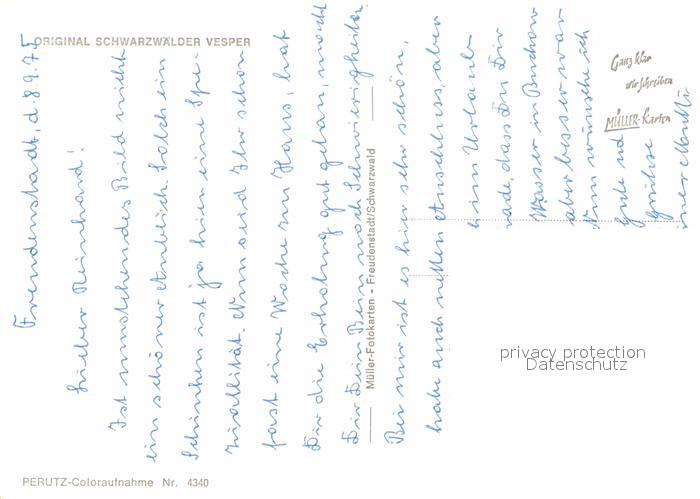 ORIGINAL SCHWARZWÄLDER VESPER
Freudenstadt, d. 8.9.75
Lieber Reinhard!
Ist umstehendes Bild nicht
ein schöner Anblick. Solch ein
Schinken ist ja hier eine Spe-
zialität. Nun seid Ihr schon
fast eine Woche zu Haus, hat
Dir die Erholung gut getan, macht
Dir Dein Bein noch Schwierigkeiten
Bei mir ist es hier sehr schön,
habe auch netten Anschluss, aber
beim Urlaub
dass Du Dir
Wasser in
aber besser war
Nun wünsche ich
Gute und
Grüße
Mutti
Müller-Fotokarten - Freudenstadt/Schwarzwald
Ganz klar
wir schreiben
MÜLLER-Karten
privacy protection
Datenschutz
PERUTZ-Coloraufnahme Nr. 4340